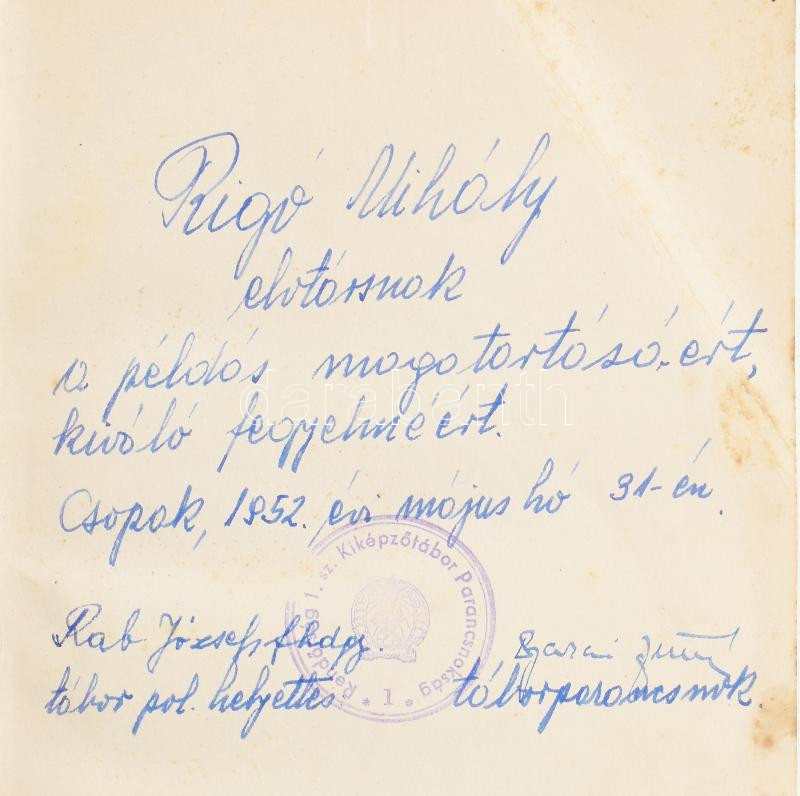 Rigó Mihály
elvtársnak
a példás magatartásáért,
kiváló fegyelmeért.
Csopak, 1952. évi május hó 31-én.
Rendőrség 1. sz. Kiképzőtábor Parancsnokság
* 1 *
Rab József fhdgy.
tábor pol. helyettes
táborparancsnok.
darabanth